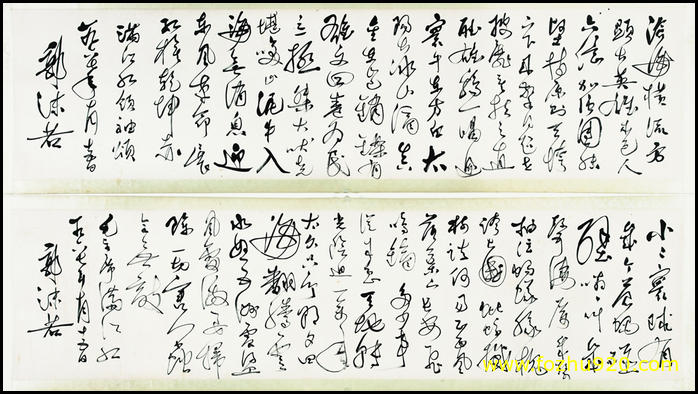 沧海横流方
显出英雄本色人
六亿加强团结
坚持原则天垮
下来擎得起世
披靡矣扶之直
听雄鸡一唱遍
寰中东方白太
阳出冰山滴真
金在岂销铄有
雄文四卷为民
立极桀犬吠尧
堪笑止泥牛入
海无消息迎
东风革命展
红旗乾坤赤
满江红领袖颂
郭沫若
小小寰球有
几个苍蝇碰
壁嗡嗡叫几声
凄厉几声
抽泣蚂蚁缘槐
夸大国蚍蜉撼
树谈何易正西风
落叶下长安飞
鸣镝多少事
从来急天地转
光阴迫一万年
太久只争朝夕四
海翻腾云
水怒五洲震荡
风雷激要扫
除一切害人虫
全无敌
毛主席满江红
郭沫若
www.fozhu920.com